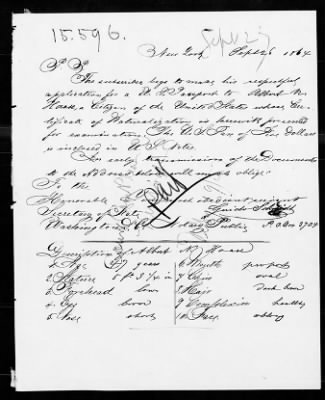 15.596.
Sept 27
New York Sept 26 1864
The subscriber begs to make his respectful
application for a U.S. Passport to Albert
Haase a Citizen of the United States whose Cer-
tificate of Naturalization is herewith presented
for examination. The U.S. Tax of Five Dollars
is inclosed in U.S. Notes.
An early transmission of the Documents
to the Address below will much oblige
To the
Honorable
Secretary of State
Washington Notary Public P.O. Box 3709
Paid
Description of Albert Haase
1. Age 37 years 6. Mouth
2. Stature 5 ft 3 1/4 in 7. Chin oval
3. Forehead low 8. Hair dark brown
4. Eyes brown 9. Complexion healthy
5. Nose short 10. Face oblong